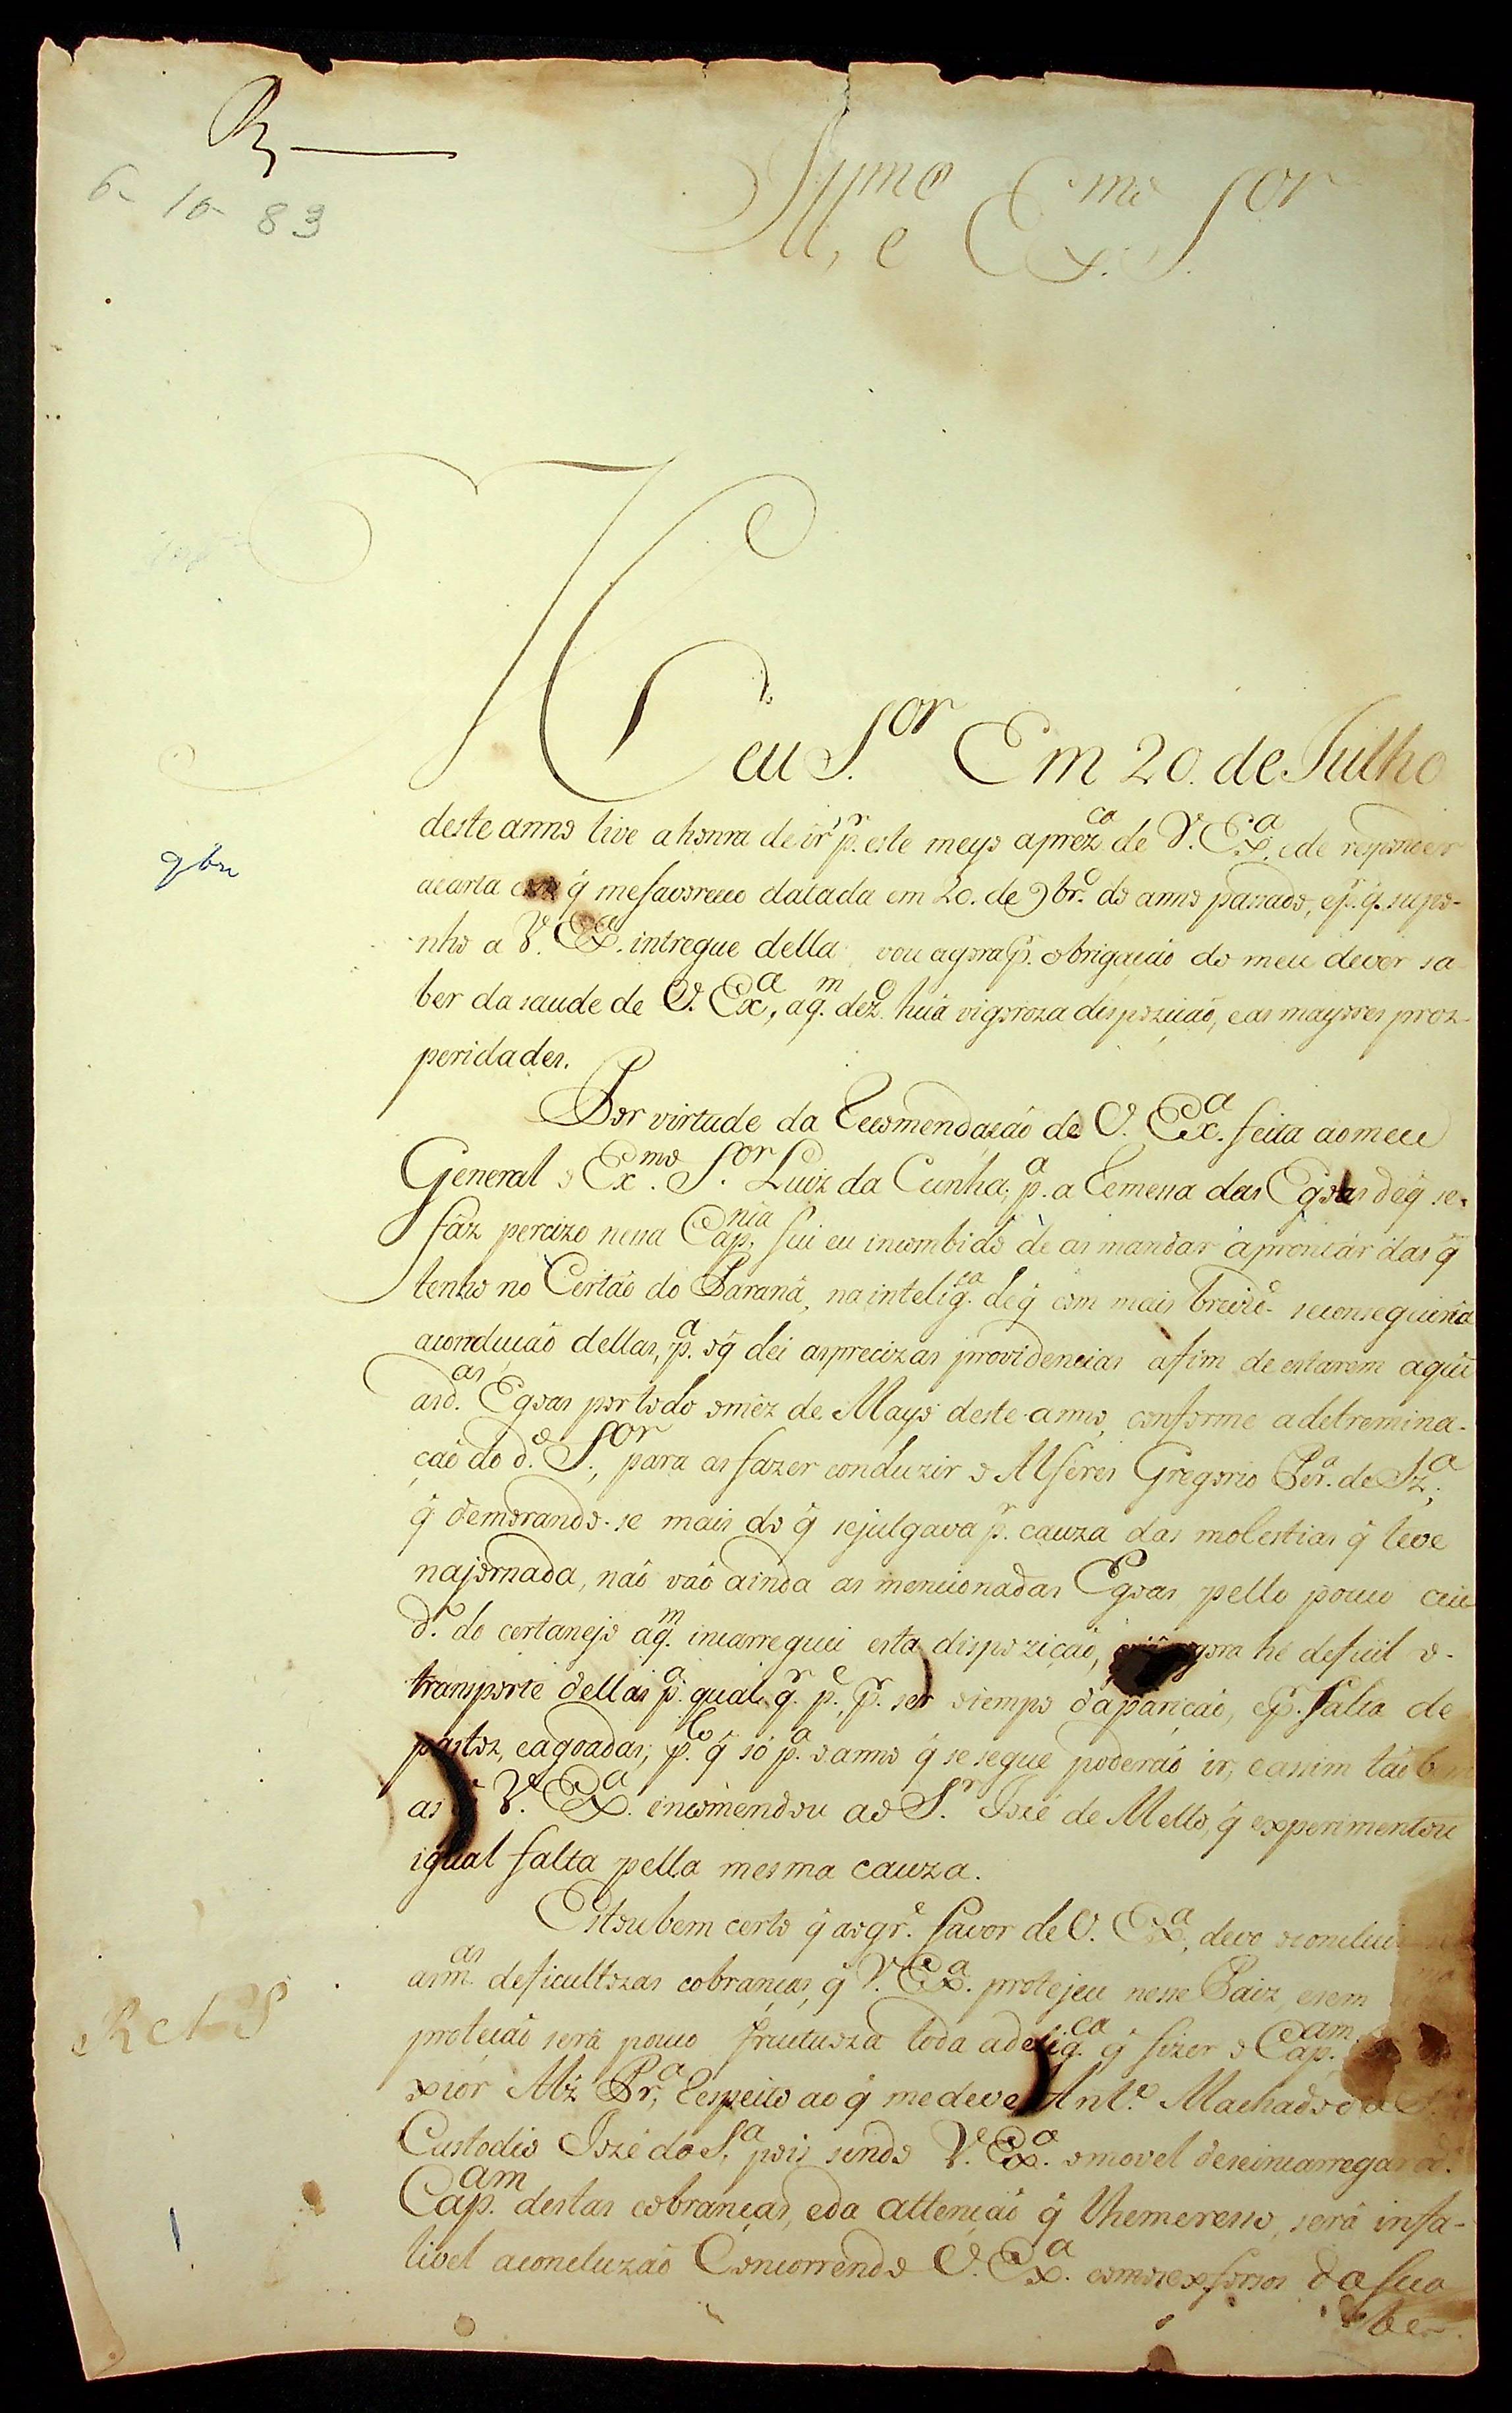 R
6- 10- 83
Ill.mo e Ex.mo S.or
Meu S.or Em 20. de Julho
deste anno tive a honra de ir p.r este meyo a prez.ca de V. Ex.a, e de responder
acarta q̃ mefavoreceo datada em 20. de 9br.o do anno passado, ep.r q̃. supo-
nho a V. Ex.a intregue della, vou agora p.r obrigação do meu dever sa-
ber da saude de V. Ex.a, aq.m dez.o huã vigoroza dispozição, eas mayores proz-
peridades.
Por virtude da Recomendação de V. Ex.a feita aomeu
General o Ex.mo S.or Luiz da Cunha, p.a a Remessa das Egoas deq̃ se-
fáz percizo nessa Cap.nia, fui eu incombido de as mandar aprontár das q̃
tenho no Certão do Paranã, na intelig.ca deq̃ com mais brevid.e seconseguiria
acondução dellas, p.a oq̃ dei asprecizas providencias afim de estarem aqui
asd.as Egoas portodo omêz de Mayo deste anno, conforme adetremina-
ção do d.o S.or, para as fazer conduzir o Alferes Gregorio Per.a de Sz.a,
q̃ demorando-se mais do q̃ sejulgava p.r cauza das molestias q̃ teve
najornada, não vão ainda as mencionadas Egoas pello pouco cui
d.o do certanejo aq.m incarreguei esta dispozição, agora hé deficil o-
transporte dellas p.a qualq.r p.e, p.r ser otempo daparição, ep.r falta de
pastoz, eagoadas; p.lo q̃ só p.a oanno q̃ se segue poderão ir, eassim tão bem
as V. Ex.a encomendou ao S.r Jozé de Mello, q̃ experimentou
igual falta pella mesma cauza.
Estou bem certo q̃ aogr.e favor de V. Ex.a, devo oconcluir
asm.as deficultozas cobranças, q̃ V. Ex.a protejeu nesse Paiz, esem
proteção será pouco fructuoza toda adelig.ca q̃ fizer o Cap.am
xior Alz. Pr.a, Respeito ao q̃ medeve Ant.o Machado da S.a
Custodio Jozé da S.a, pois sendo V. Ex.a omovel deseincarregar od.o
Cap.am destas cobranças, eda attenção q̃ lhemeresso, será infa-
livel aconcluzão Concorrendo V. Ex.a comosexforsos da sua
be-
gbn
R
1